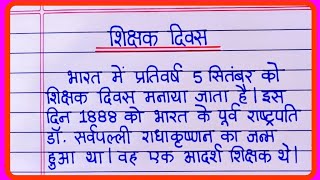 शिक्षक दिवस
भारत में प्रतिवर्ष 5 सितंबर को
शिक्षक दिवस मनाया जाता है। इस
दिन 1888 को भारत के पूर्व राष्ट्रपति
डॉ. सर्वपल्ली राधाकृष्णन का जन्म
हुआ था। वह एक आदर्श शिक्षक थे।